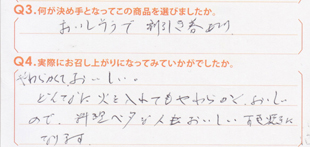 Q3.何が決め手となってこの商品を選びましたか。
おいしそうで 割引き
Q4.実際にお召し上がりになってみていかがでしたか。
やわらかくておいしい。
どんなに火を入れてもやわらかく、おいしい
ので、料理ベタな人もおいしい
なります。